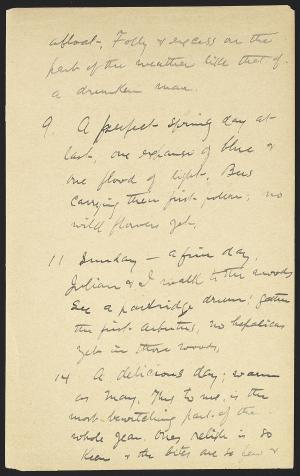 afloat. Folly & excess on the
part of the weather like that of
a drunken man.
9. A perfect spring day at
last, one expanse of blue &
one flood of light. Bees
carrying their first pollen; no
wild flowers yet.
11 Sunday — a fine day,
Julian & I walk to the woods
See a partridge drum; gather
the first arbutus, no hepaticas
yet in those woods.
14. A delicious day; warm
as May. This to me is the
most bewitching part of the
whole year. One's relish is so
keen & the bites are so few &